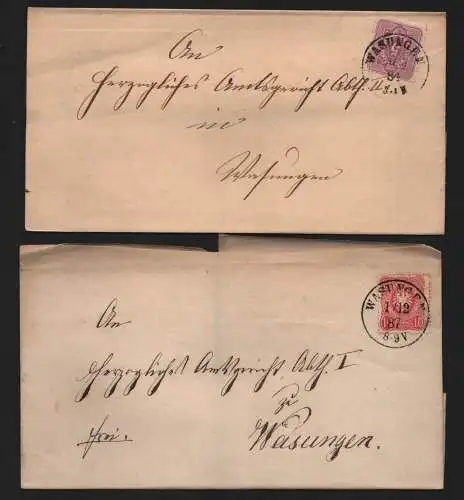 WASUNGEN
84
An
Herzogliches Amtsgericht Abth. II
in
Wasungen
WASUNGEN
1 12
87
8-9V
10
An
Herzogliches Amtsgericht Abth. I
zu
frei.
Wasungen.